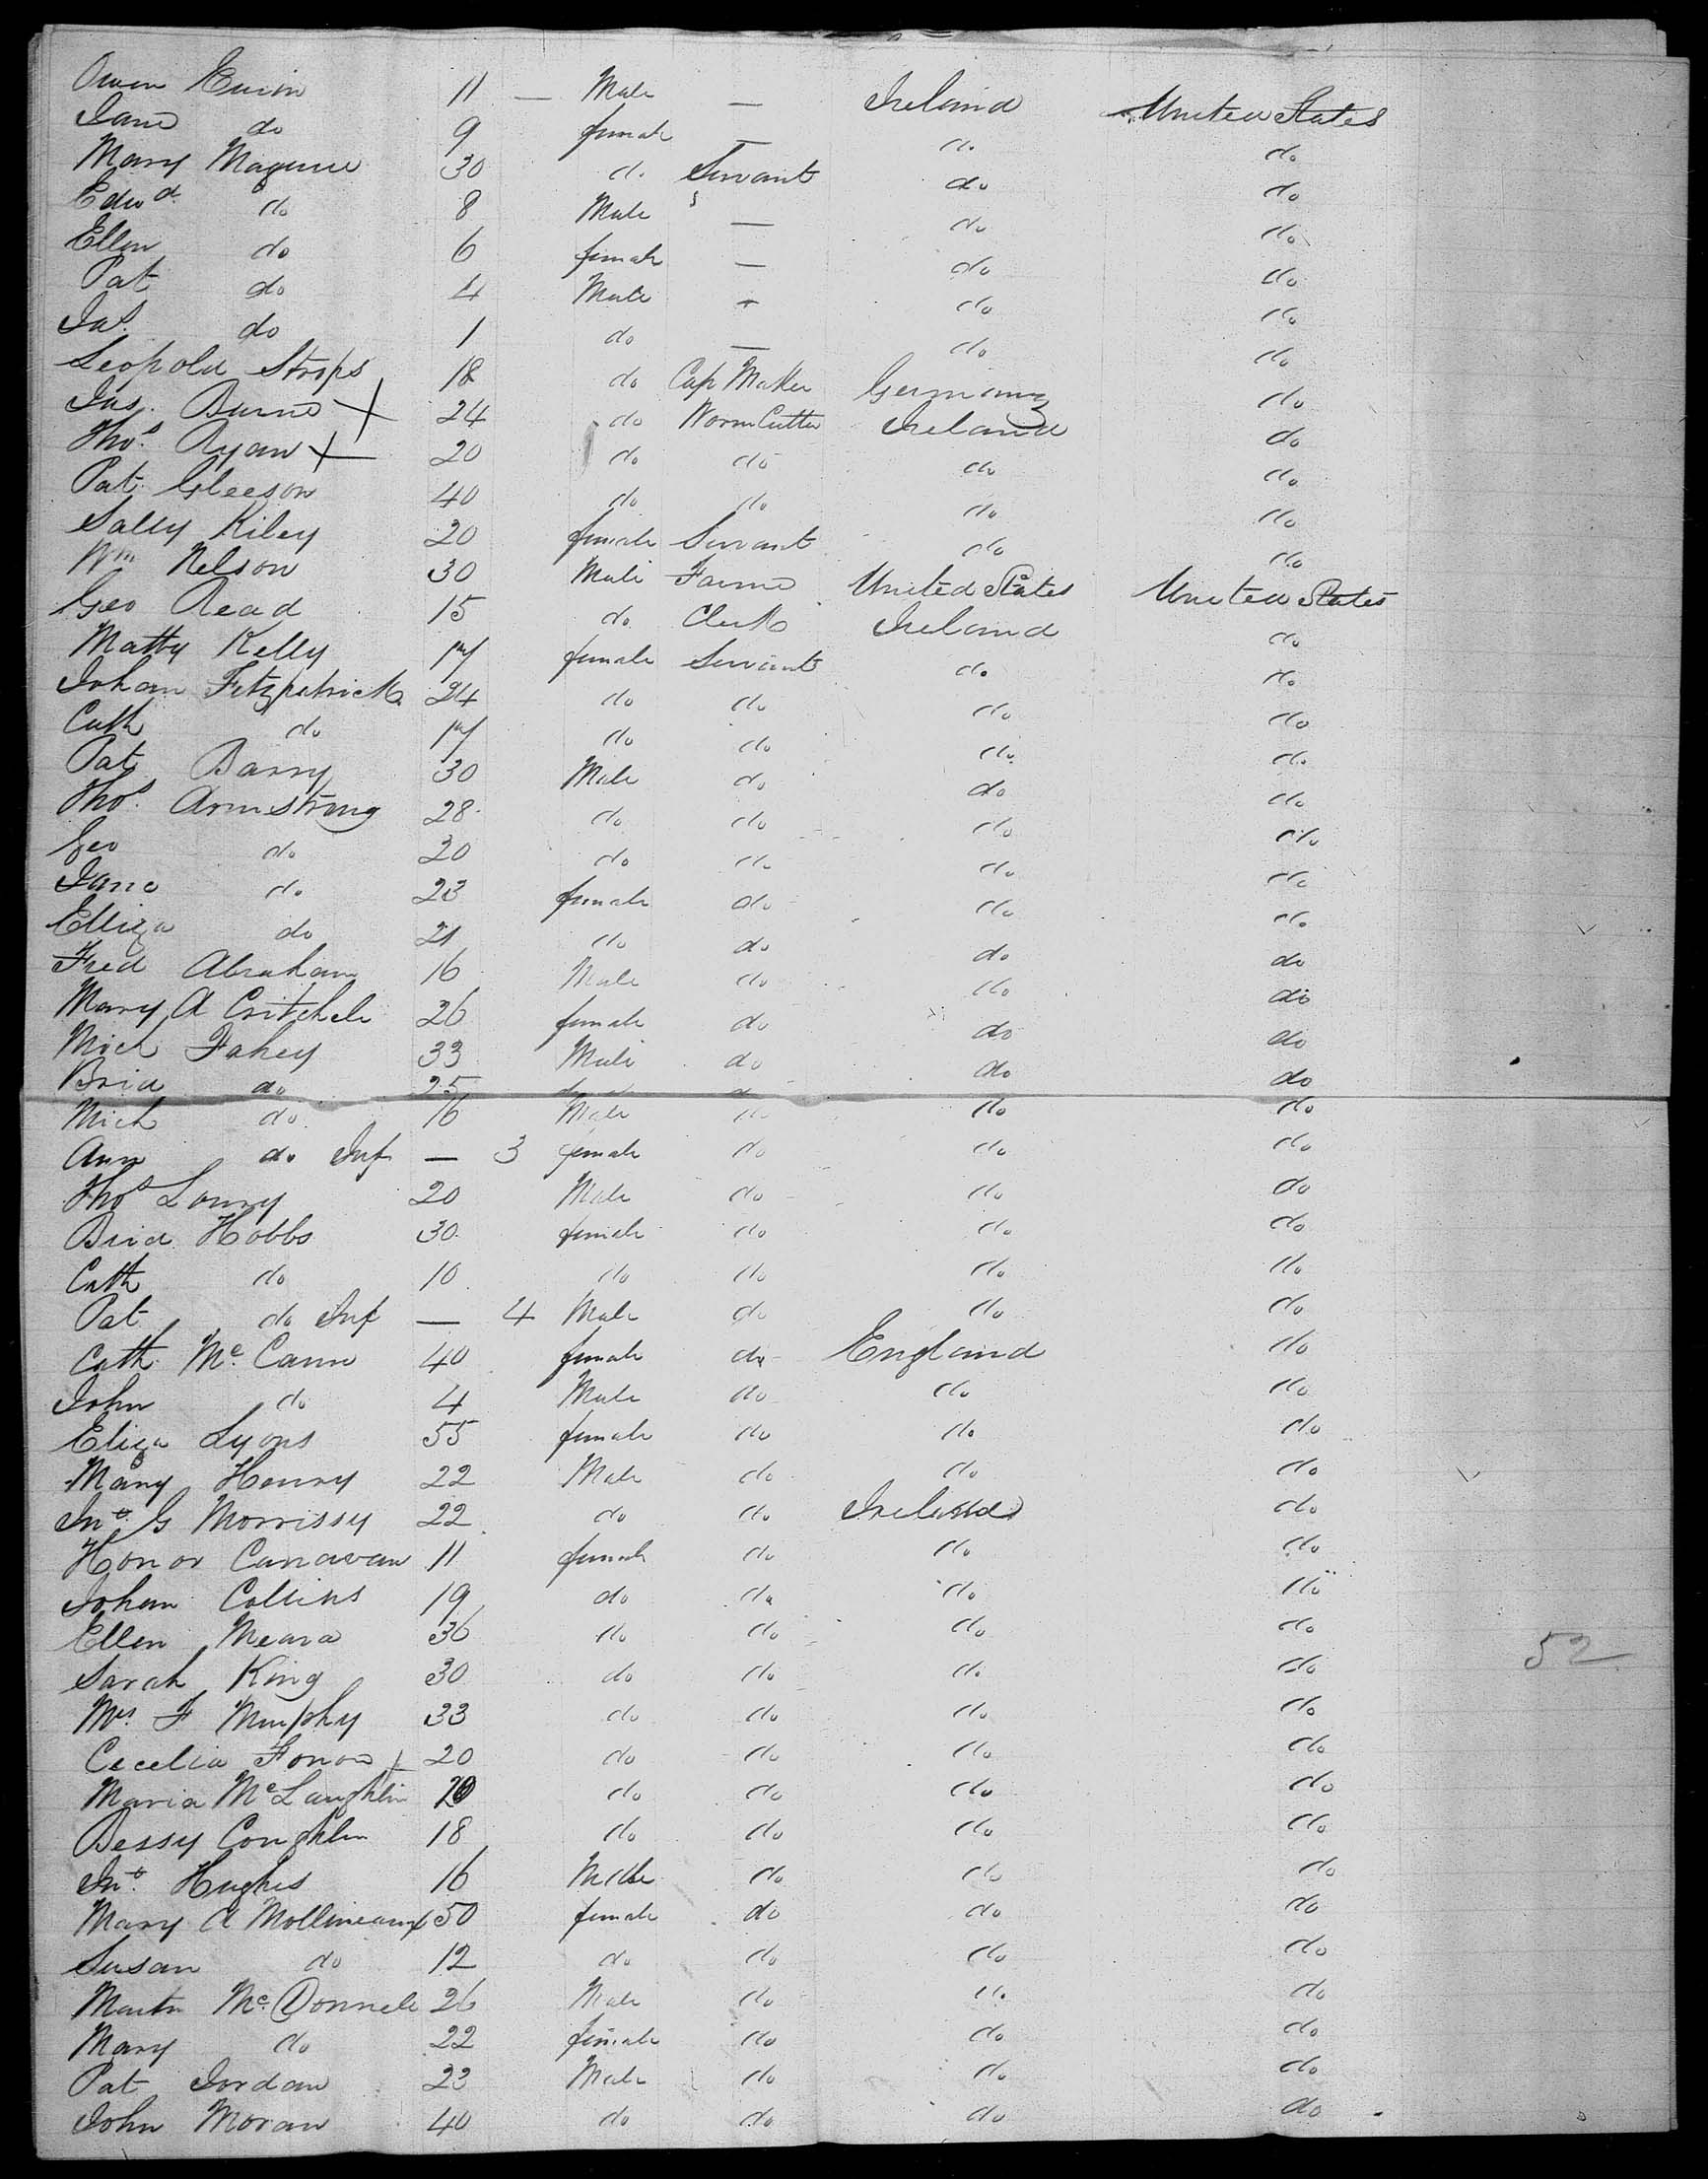 Owen 11 — Male — Ireland United States
Jane do 9 female — do do
Mary Maguire 30 do Servant do do
Edwd do 8 Male — do do
Ellen do 6 female — do do
Pat do 4 Male — do do
Jas. do 1 do — do do
Leopold Strops 18 do Cap Maker Germany do
Jas. Burns + 24 do Ireland do
Thos. Ryan + 20 do do do do
Pat Gleeson 40 do do do do
Sally Kiley 20 female Servant do do
Wm Nelson 30 Male United States United States
Geo Read 15 do Clerk Ireland do
Matty Kelly 17 female Servant do do
Johan Fitzpatrick 24 do do do do
Cath do 17 do do do do
Pat Barry 30 Male do do do
Thos. Armstrong 28 do do do do
Geo do 20 do do do do
Jane do 23 female do do do
Elliza do 21 do do do do
Fred Abraham 16 Male do do do
Mary A 26 female do do do
Mich Fahey 33 Male do do do
Brid do 25 do do do do
Mich do 16 Male do do do
Ann do Inf — 3 female do do do
Thos Lowry 20 Male do do do
Brid Hobbs 30 female do do do
Cath do 10 do do do do
Pat do Inf — 4 Male do do do
Cath Mc. Cann 40 female do England do
John do 4 Male do do do
Eliza Lyons 55 female do do do
Mary Henry 22 Male do do do
Jno. G Morrissy 22 do do Ireland do
Honor Canavan 11 female do do do
Johan Collins 19 do do do do
Ellen Meara 36 do do do do
Sarah King 30 do do do do 52
Mrs. F Murphy 33 do do do do
Cecelia + 20 do do do do
Maria McLaughlin 20 do do do do
Bessy Coughlin 18 do do do do
Jno. Hughes 16 Male do do do
Mary A Mollineaux 50 female do do do
Susan do 12 do do do do
Martn Mc.Donnell 26 Male do do do
Mary do 22 female do do do
Pat Jordan 23 Male do do do
John Moran 40 do do do do